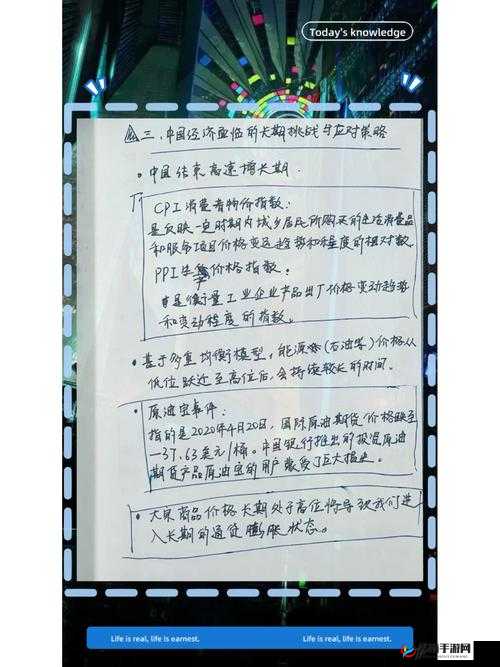 Today's knowledge
三、中国经济面临的长期挑战与应对策略
• 中国结束高速增长期.
CPI 消费者物价指数:
是反映一定时期内城乡居民所购买的生活消费品
和服务项目价格变动趋势和程度的相对数
PPI 生产价格指数:
是衡量工业企业产品出厂价格变动趋势
和变动程度的指数。
• 基于多重均衡模型,能源(石油等)价格从
低位跃迁至高位后,会持续较长的时间.
• 原油宝事件:
指的是2020年4月20日,国际原油期货价格跌至
-37.63美元/桶。中国银行推出的投资原油
期货产品原油宝的用户蒙受了巨大损失。
• 大宗商品价格长期处于高位将导致我们进
入长期的通货膨胀状态。
Life is real, life is earnest.
Life is real, life is earnest.
手游网